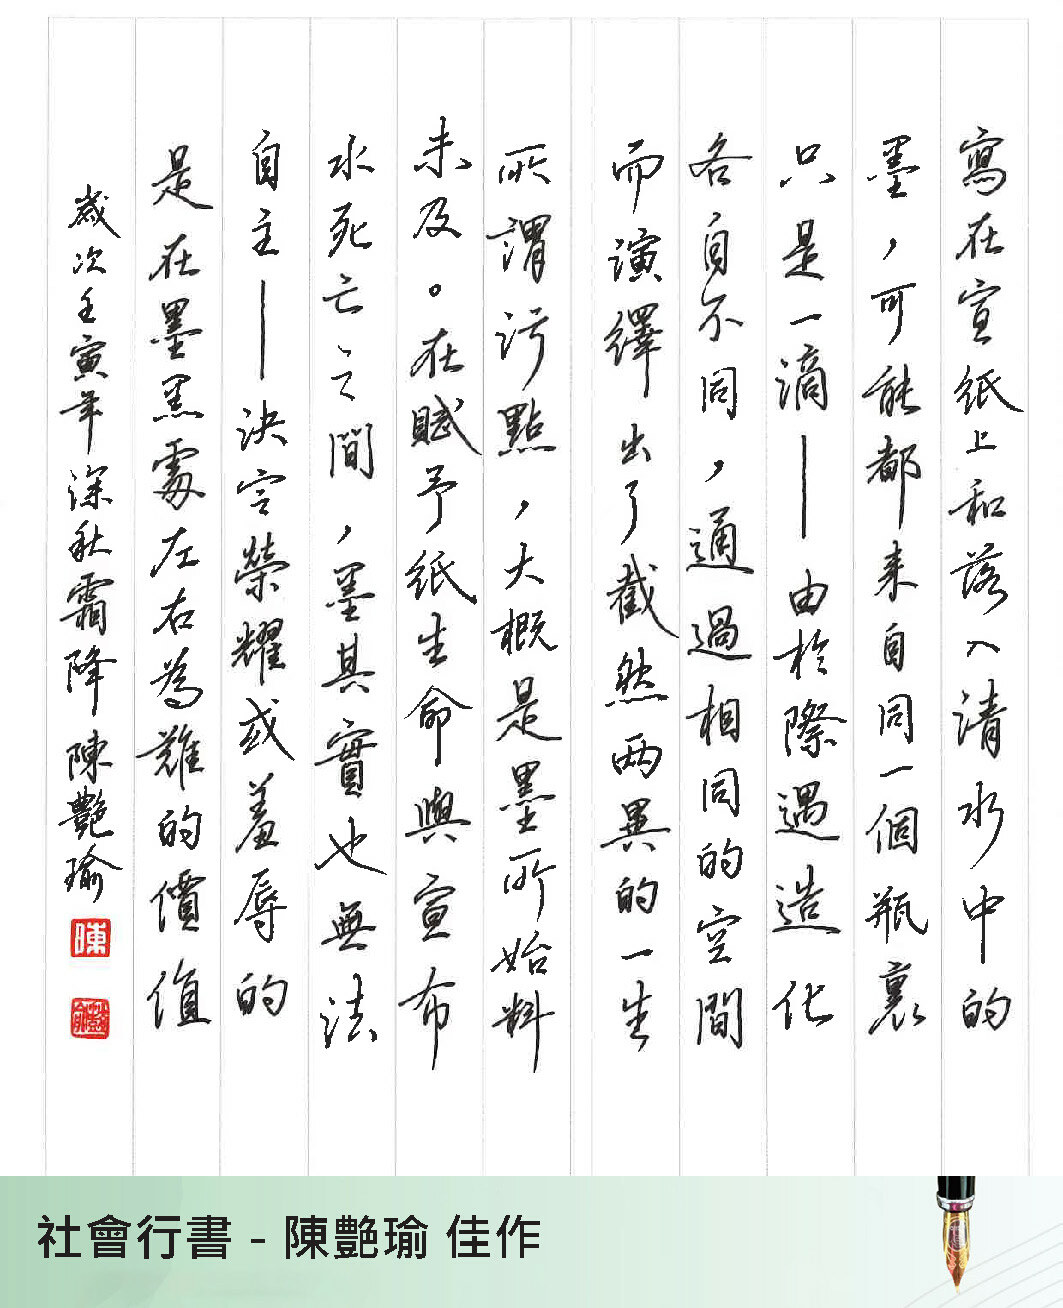 寫在宣紙上和落入清水中的
墨，可能都來自同一個瓶裏
只是一滴——由於際遇造化
各自不同，通過相同的空間
而演繹出了截然兩異的一生
所謂污點，大概是墨所始料
未及。在賦予紙生命與宣布
水死亡之間，墨其實也無法
自主——決定榮耀或羞辱的
是在墨黑處左右為難的價值
歲次壬寅年深秋霜降 陳艷瑜
陳
社會行書 - 陳艷瑜 佳作